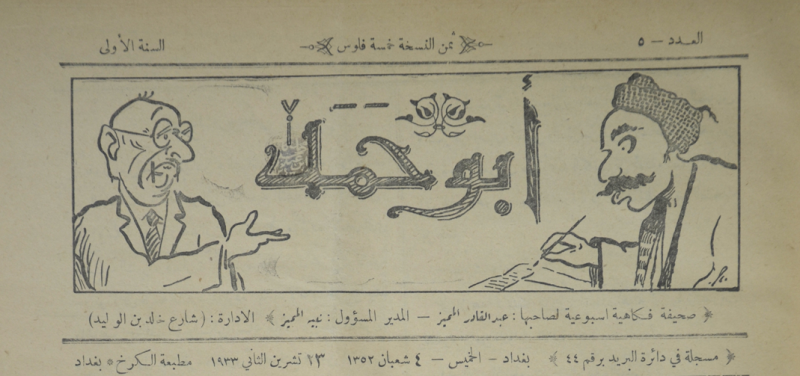 العدد – ٥ ثمن النسخة خمسة فلوس السنة الأولى
أبو حمد
صحيفة فكاهية اسبوعية لصاحبها : عبدالقادر المميز – المدير المسؤول : نبيه المميز الادارة : ( شارع خالد بن الوليد )
مسجلة في دائرة البريد برقم ٤٤ بغداد – الخميس – ٤ شعبان ١٣٥٢ ٢٣ تشرين الثاني ١٩٣٣ مطبعة الكرخ ٥ بغداد